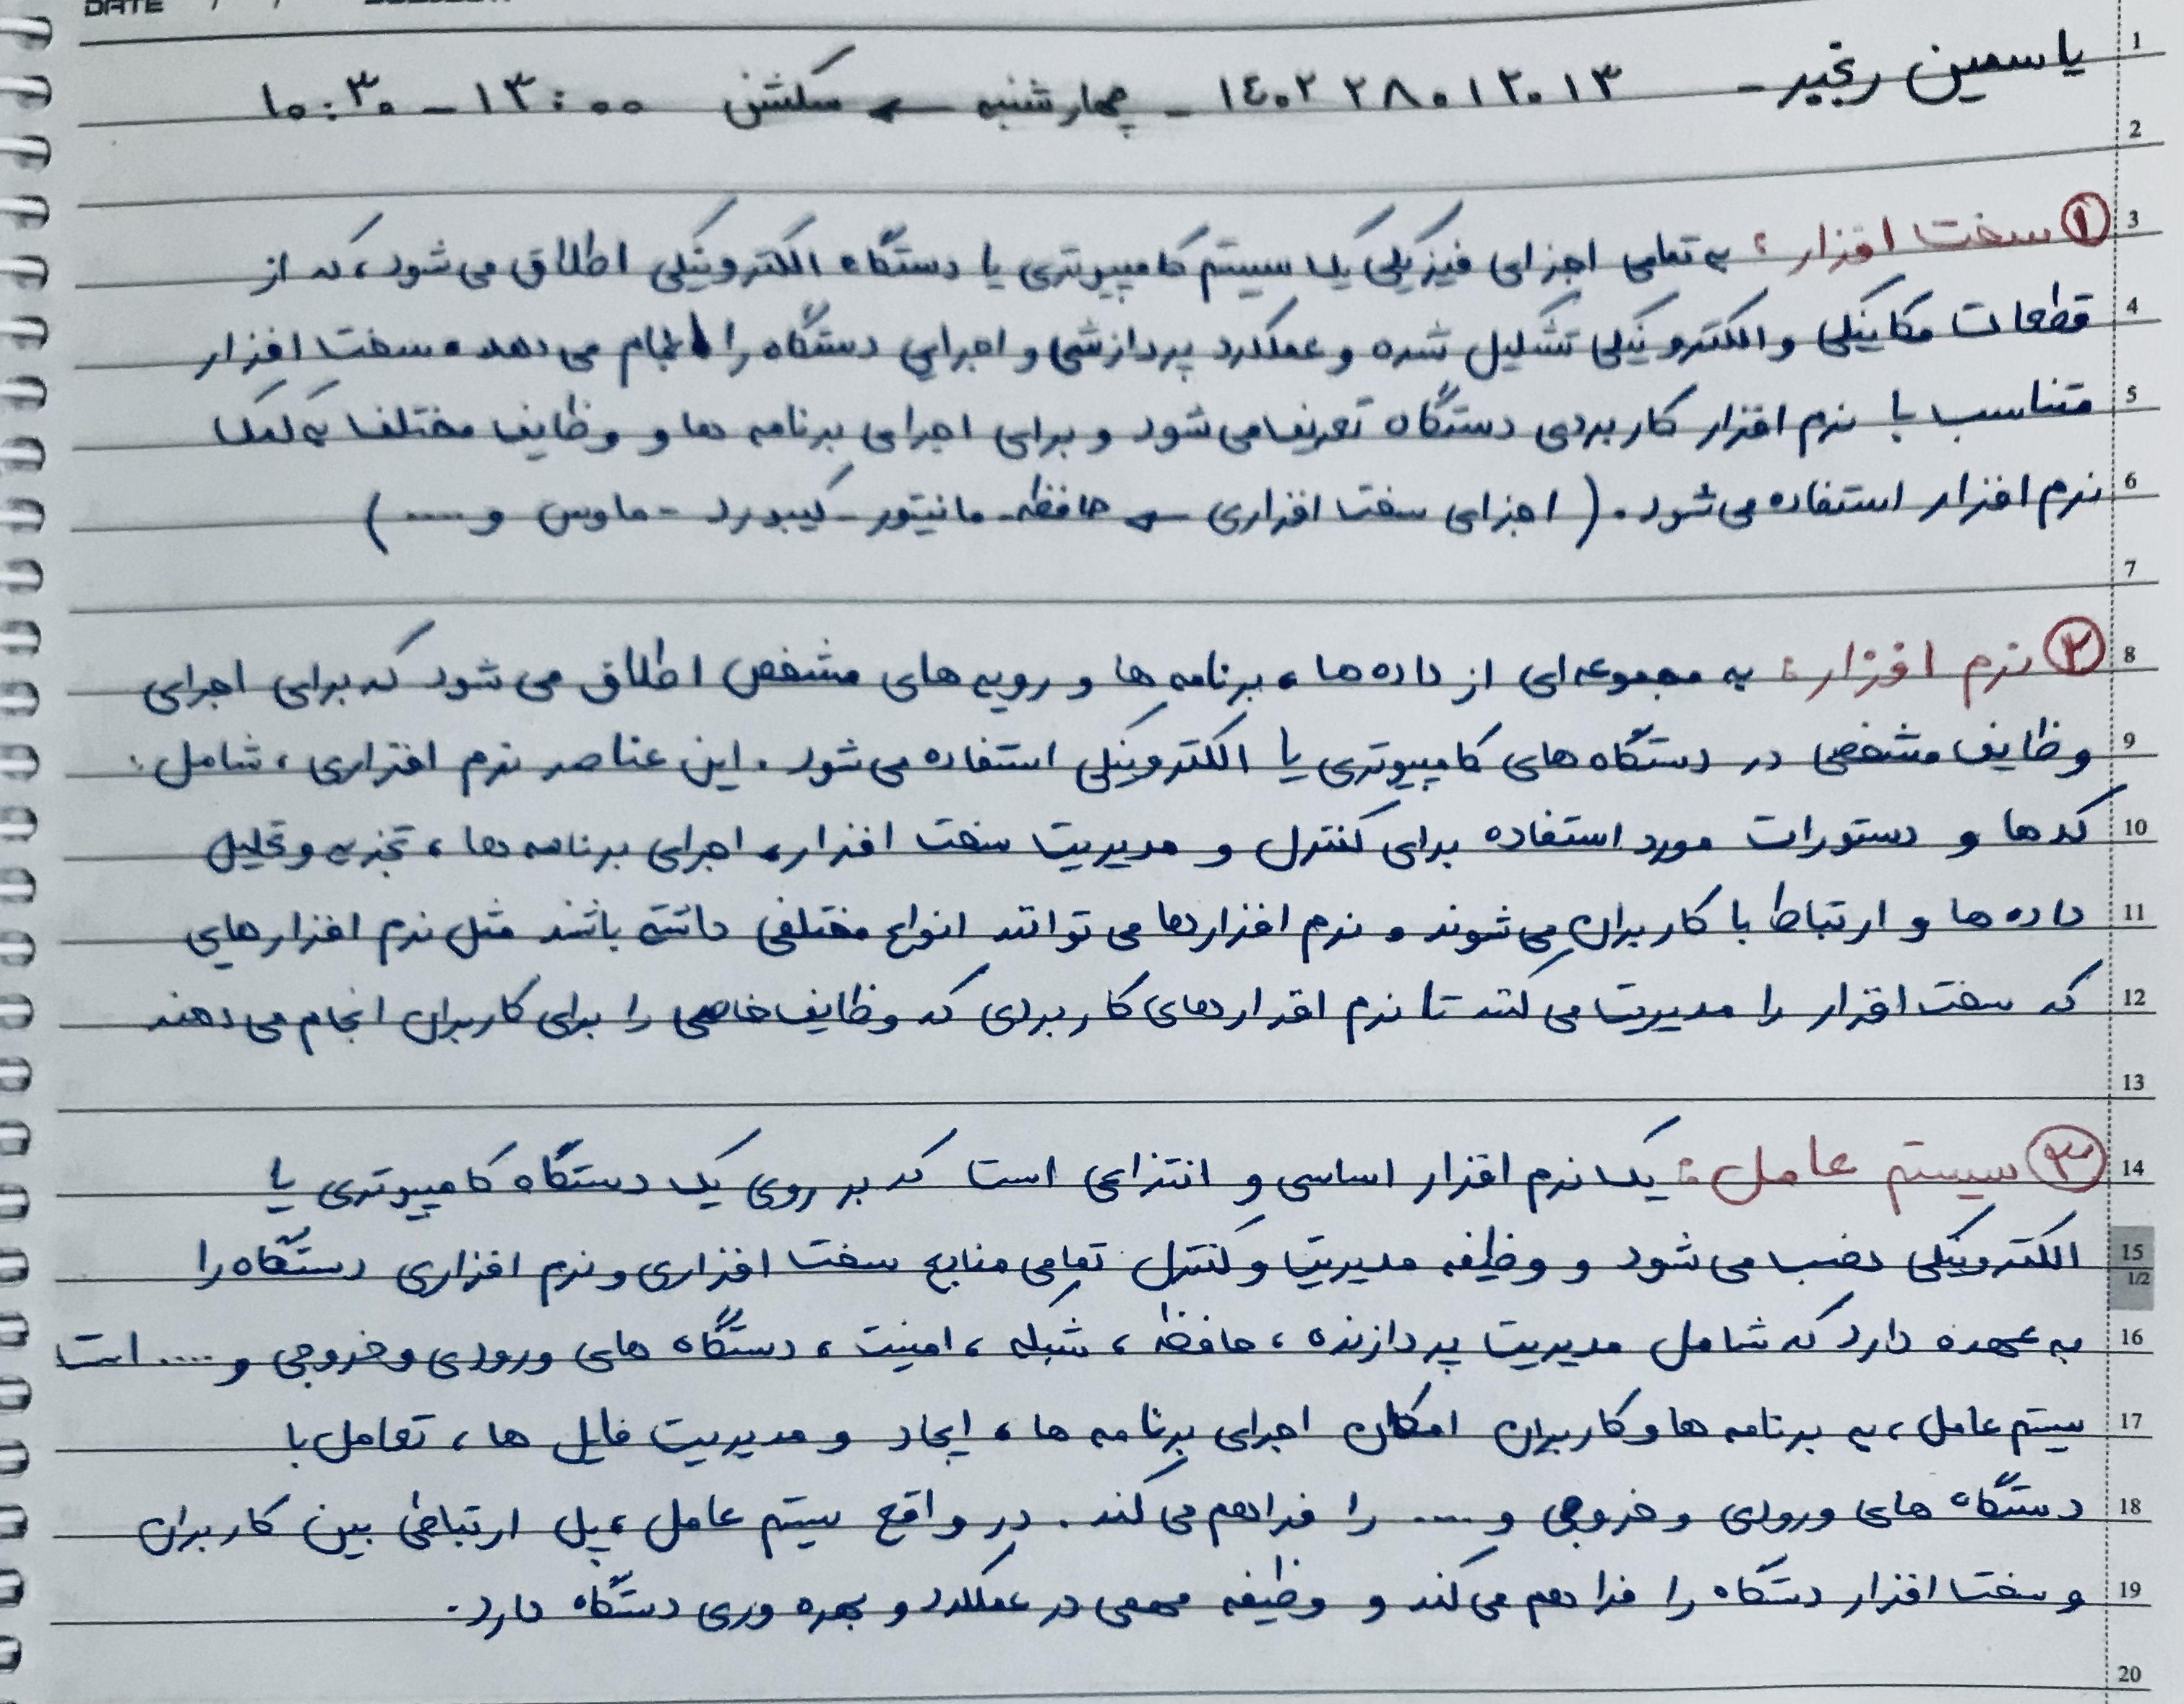 DATE / /
یاسمین رنجبر - ۱۴۰۲۲۸۰۱۲۰۱۳ - چهارشنبه ← سکشن ۱۳:۰۰ - ۱۰:۳۰
1
2
3 ① سخت افزار : به تمامی اجزای فیزیکی یک سیستم کامپیوتری یا دستگاه الکترونیکی اطلاق می‌شود، که از
4 قطعات مکانیکی و الکترونیکی تشکیل شده و عملکرد پردازشی و اجرایی دستگاه را انجام می‌دهد. سخت افزار
5 متناسب با نرم افزار کاربردی دستگاه تعریف می‌شود و برای اجرای برنامه ها و وظایف مختلف به کمک
6 نرم افزار استفاده می‌شود. ( اجزای سخت افزاری ← حافظه - مانیتور - کیبورد - ماوس و .... )
7
8 ② نرم افزار : به مجموعه‌ای از داده‌ها، برنامه ها و رویه های مشخص اطلاق می‌شود که برای اجرای
9 وظایف مشخصی در دستگاه های کامپیوتری یا الکترونیکی استفاده می‌شود. این عناصر نرم افزاری، شامل:
10 کدها و دستورات مورد استفاده برای کنترل و مدیریت سخت افزار، اجرای برنامه ها، تجزیه و تحلیل
11 داده ها و ارتباط با کاربران می‌شوند. نرم افزارها می توانند انواع مختلفی داشته باشند مثل نرم افزارهایی
12 که سخت افزار را مدیریت می کنند تا نرم افزارهای کاربردی که وظایف خاصی را برای کاربران انجام می‌دهند
13
14 ③ سیستم عامل : یک نرم افزار اساسی و انتزاعی است که بر روی یک دستگاه کامپیوتری یا
15 الکترونیکی نصب می شود و وظیفه مدیریت و کنترل تمامی منابع سخت افزاری و نرم افزاری دستگاه را
1/2
16 به عهده دارد که شامل مدیریت پردازنده، حافظه، شبکه، امنیت، دستگاه های ورودی و خروجی و .... است
17 سیستم عامل، به برنامه ها و کاربران امکان اجرای برنامه ها، ایجاد و مدیریت فایل ها، تعامل با
18 دستگاه های ورودی و خروجی و .... را فراهم می کند. در واقع سیستم عامل، پل ارتباطی بین کاربران
19 و سخت افزار دستگاه را فراهم می‌کند و وظیفه مهمی در عملکرد و بهره وری دستگاه دارد.
20